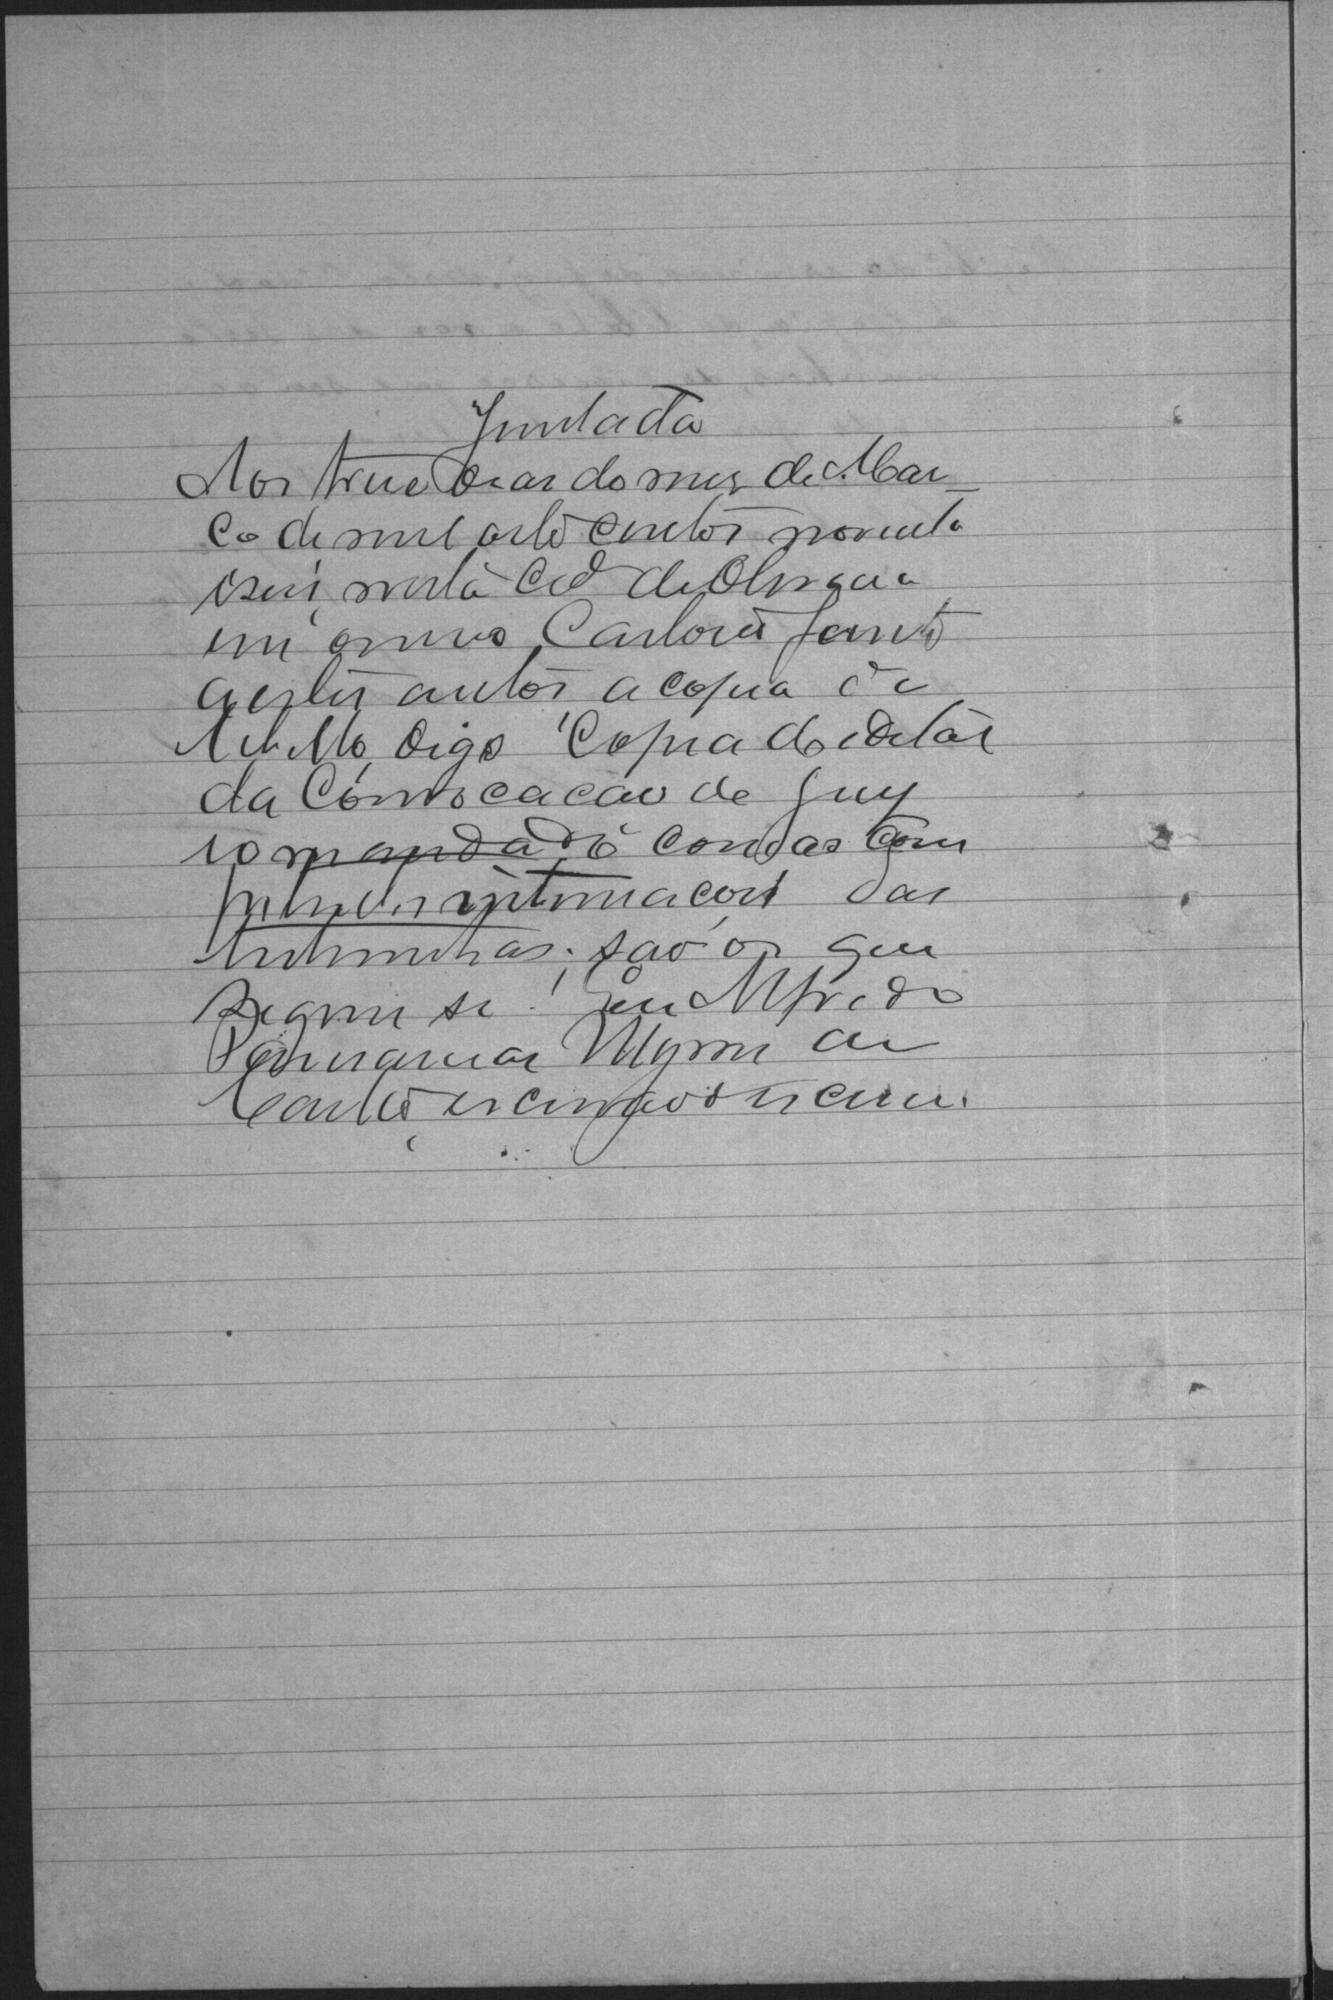 Juntada
Aos treze dias do mez de Mar-
ço de mil oito centos noventa
e seis, nesta Cid de
em o meu Cartorio junto
a estes autos a copia de
libello, digo Copia do edital
da Convocação de Jury
com as com
intimações das
testemunhas; são os que
segue se. Eu Alfredo
de
escrivão escrevi.